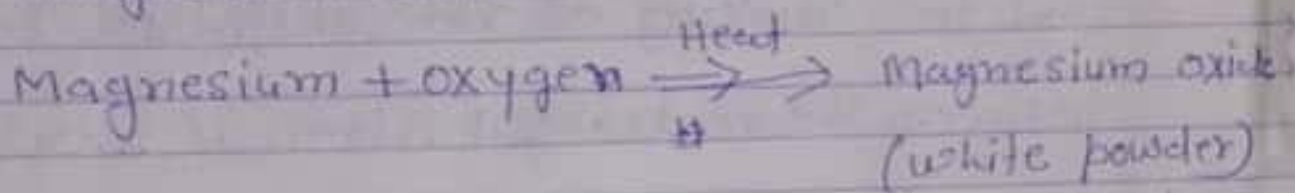 Heat
Magnesium + oxygen ⟹→ Magnesium oxide
(white powder)